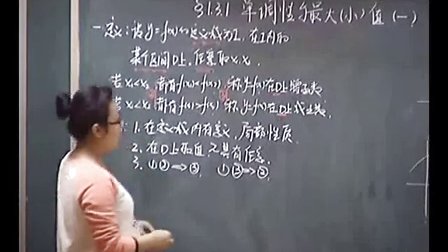 §1.3.1 单调性与最大(小)值(一)
一.定义:设y=f(x)的定义域为I,在I内的
某个区间D上,任意的x₁,x₂
若x₁<x₂,都有f(x₁)<f(x₂),称y=f(x)在D上增函数
若x₁<x₂,都有f(x₁)>f(x₂),称y=f(x)在D上减函数
1.在定义域内有定义,局部性质.
2.在D上取值,具有任意.
3.①②⇒③, ①③⇒②.